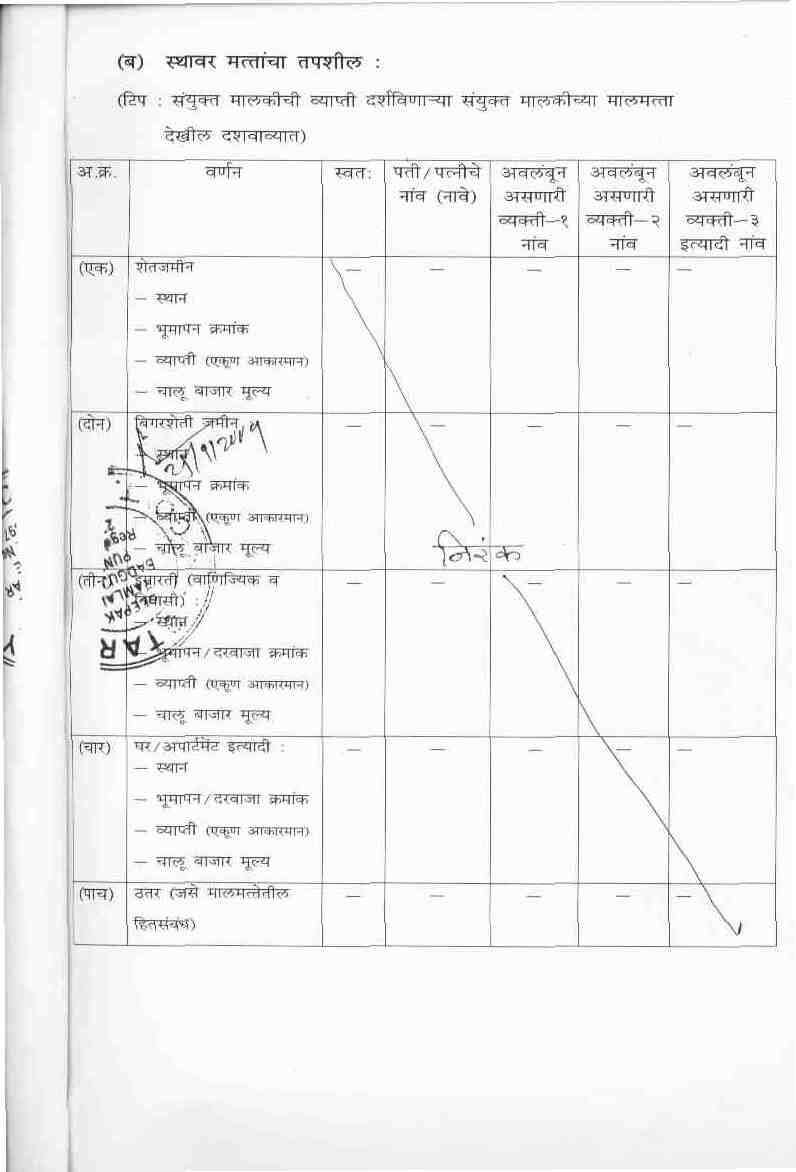 (ब) स्थावर मत्तांचा तपशील :
(टिप : संयुक्त मालकीची व्याप्ती दर्शविणाऱ्या संयुक्त मालकीच्या मालमत्ता
देखील दशवाव्यात)
अ.क्र. वर्णन स्वतः पती/पत्नीचे अवलंबून अवलंबून अवलंबून
नांव (नावे) असणारी असणारी असणारी
व्यक्ती–१ व्यक्ती–२ व्यक्ती–३
नांव नांव इत्यादी नांव
(एक) शेतजमीन — — — — —
— स्थान
— भूमापन क्रमांक
— व्याप्ती (एकूण आकारमान)
— चालू बाजार मूल्य
(दोन) बिगरशेती जमीन — — — — —
— स्थान
— भूमापन क्रमांक
— व्याप्ती (एकूण आकारमान)
— चालू बाजार मूल्य
निरंक
(तीन) इमारती (वाणिज्यिक व — — — — —
निवासी) :
— स्थान
— भूमापन/दरवाजा क्रमांक
— व्याप्ती (एकूण आकारमान)
— चालू बाजार मूल्य
(चार) घर/अपार्टमेंट इत्यादी : — — — — —
— स्थान
— भूमापन/दरवाजा क्रमांक
— व्याप्ती (एकूण आकारमान)
— चालू बाजार मूल्य
(पाच) उतर (जसे मालमत्तेतील — — — — —
हितसंबंध)
TAR
DEEPAK
PUN
Regd